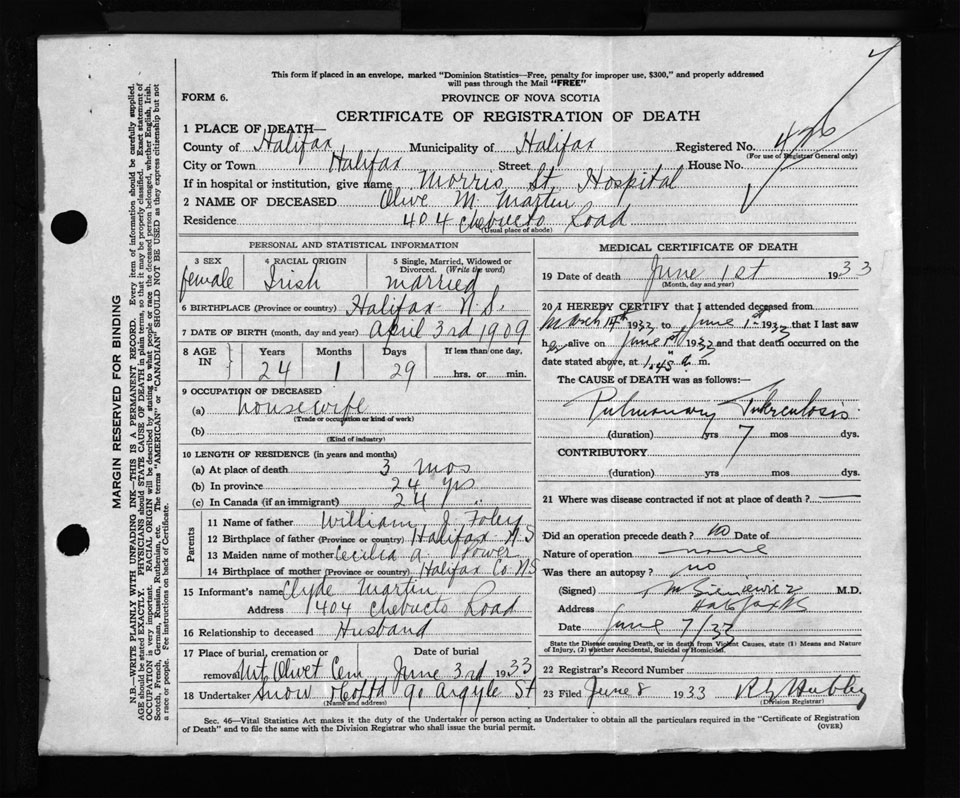 This form if placed in an envelope, marked "Dominion Statistics—Free, penalty for improper use, $300," and properly addressed
will pass through the Mail "FREE"
FORM 6.
PROVINCE OF NOVA SCOTIA
CERTIFICATE OF REGISTRATION OF DEATH
1 PLACE OF DEATH—
County of Halifax Municipality of Halifax Registered No. 426
(For use of Registrar General only)
City or Town Halifax Street House No.
If in hospital or institution, give name Morris St Hospital
2 NAME OF DECEASED Olive M. Martin
Residence 404 Chebucto Road
(Usual place of abode)
PERSONAL AND STATISTICAL INFORMATION
3 SEX female
4 RACIAL ORIGIN Irish
5 Single, Married, Widowed or Divorced. (Write the word) married
6 BIRTHPLACE (Province or country) Halifax N.S.
7 DATE OF BIRTH (month, day and year) April 3rd 1909
8 AGE IN Years 24 Months 1 Days 29 If less than one day, hrs. or min.
9 OCCUPATION OF DECEASED
(a) housewife
(Trade or occupation or kind of work)
(b)
(Kind of industry)
10 LENGTH OF RESIDENCE (in years and months)
(a) At place of death 3 mos
(b) In province 24 yrs
(c) In Canada (if an immigrant) 24 "
Parents
11 Name of father William J. Foley
12 Birthplace of father (Province or country) Halifax N.S
13 Maiden name of mother Cecilia A. Power
14 Birthplace of mother (Province or country) Halifax Co NS
15 Informant's name Clyde Martin
Address 1404 Chebucto Road
16 Relationship to deceased Husband
17 Place of burial, cremation or Date of burial
removal Mt. Olivet Cem June 3rd 1933
18 Undertaker Snow & Co Ltd 90 Argyle St
(Name and address)
MEDICAL CERTIFICATE OF DEATH
19 Date of death June 1st 1933
(Month, day and year)
20 I HEREBY CERTIFY that I attended deceased from
March 14th 1933 to June 1st 1933 that I last saw
her alive on June 1st 1933 and that death occurred on the
date stated above, at 1.45 a. m.
The CAUSE OF DEATH was as follows:—
Pulmonary Tuberculosis
(duration) yrs 7 mos dys.
CONTRIBUTORY
(duration) yrs mos dys.
21 Where was disease contracted if not at place of death?
Did an operation precede death? no Date of
Nature of operation none
Was there an autopsy? no
(Signed) T M Sieniewicz M.D.
Address Halifax NS
Date June 7/33
State the Disease causing Death, or in death from Violent Causes, state (1) Means and Nature
of Injury, (2) whether Accidental, Suicidal or Homicidal.
22 Registrar's Record Number
23 Filed June 8 1933
(Division Registrar)
Sec. 46—Vital Statistics Act makes it the duty of the Undertaker or person acting as Undertaker to obtain all the particulars required in the "Certificate of Registration
of Death" and to file the same with the Division Registrar who shall issue the burial permit.
(OVER)
MARGIN RESERVED FOR BINDING
N.B.—WRITE PLAINLY WITH UNFADING INK—THIS IS A PERMANENT RECORD. Every item of information should be carefully supplied.
AGE should be stated EXACTLY. PHYSICIANS should STATE CAUSE OF DEATH in plain terms, so that it may be properly classified. Exact statement of
OCCUPATION is very important. RACIAL ORIGIN will be described by stating to what people or race the deceased person belonged, whether English, Irish,
Scotch, French, German, Russian, Ruthenian, etc. The terms "AMERICAN" or "CANADIAN" SHOULD NOT BE USED as they express citizenship but not
a race or people. Fee instructions on back of Certificate.